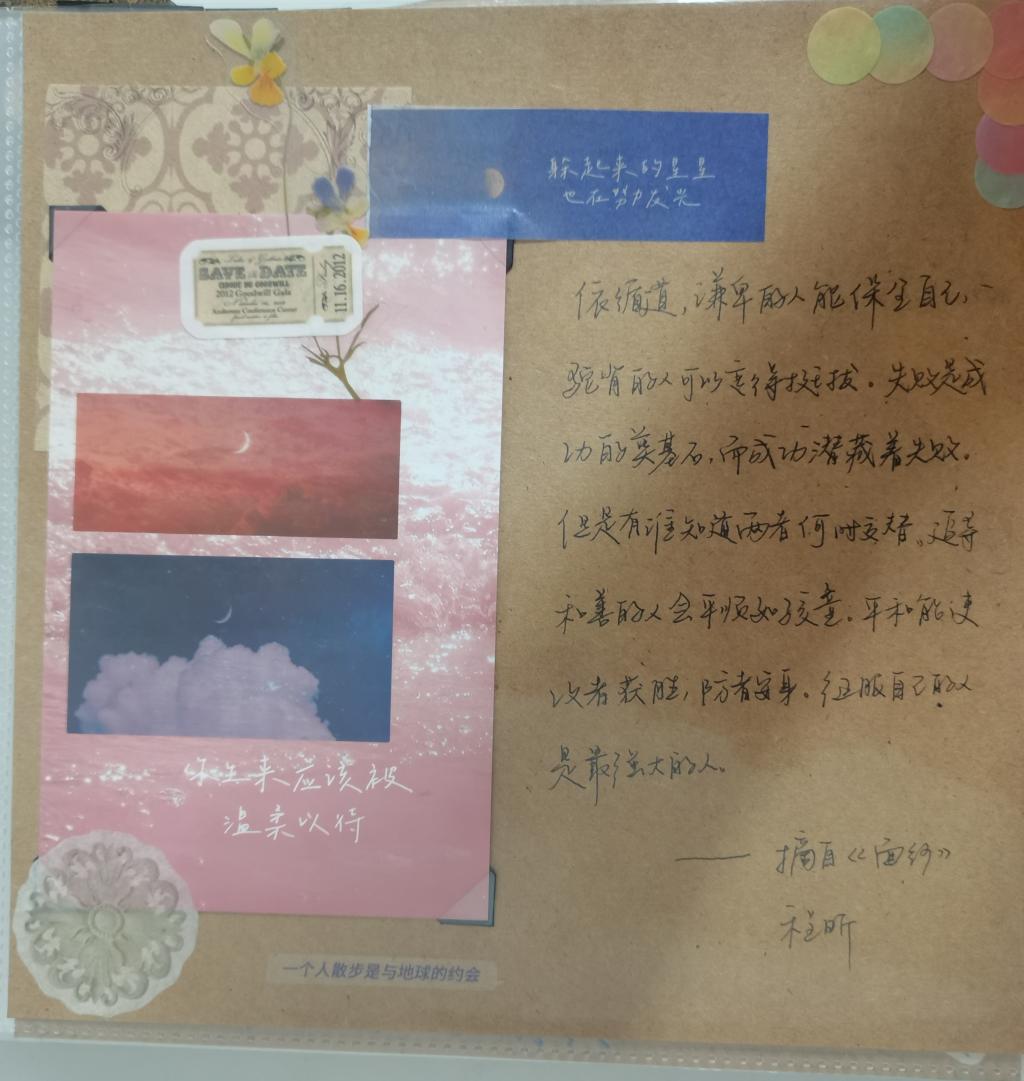 躲起来的星星
也在努力发光
SAVE the DATE
CIRQUE DU GOODWILL
2012 Goodwill Gala
Anderson Conference Center
11.16.2012
依循道,谦卑的人能保全自己,
驼背的人可以变得挺拔。失败是成
功的奠基石,而成功潜藏着失败。
但是有谁知道两者何时交替。追寻
和善的人会平顺如孩童。平和能使
攻者获胜,防者安身。征服自己的人
是最强大的人。
你生来应该被
温柔以待
—— 摘自《面纱》
程昕
一个人散步是与地球的约会